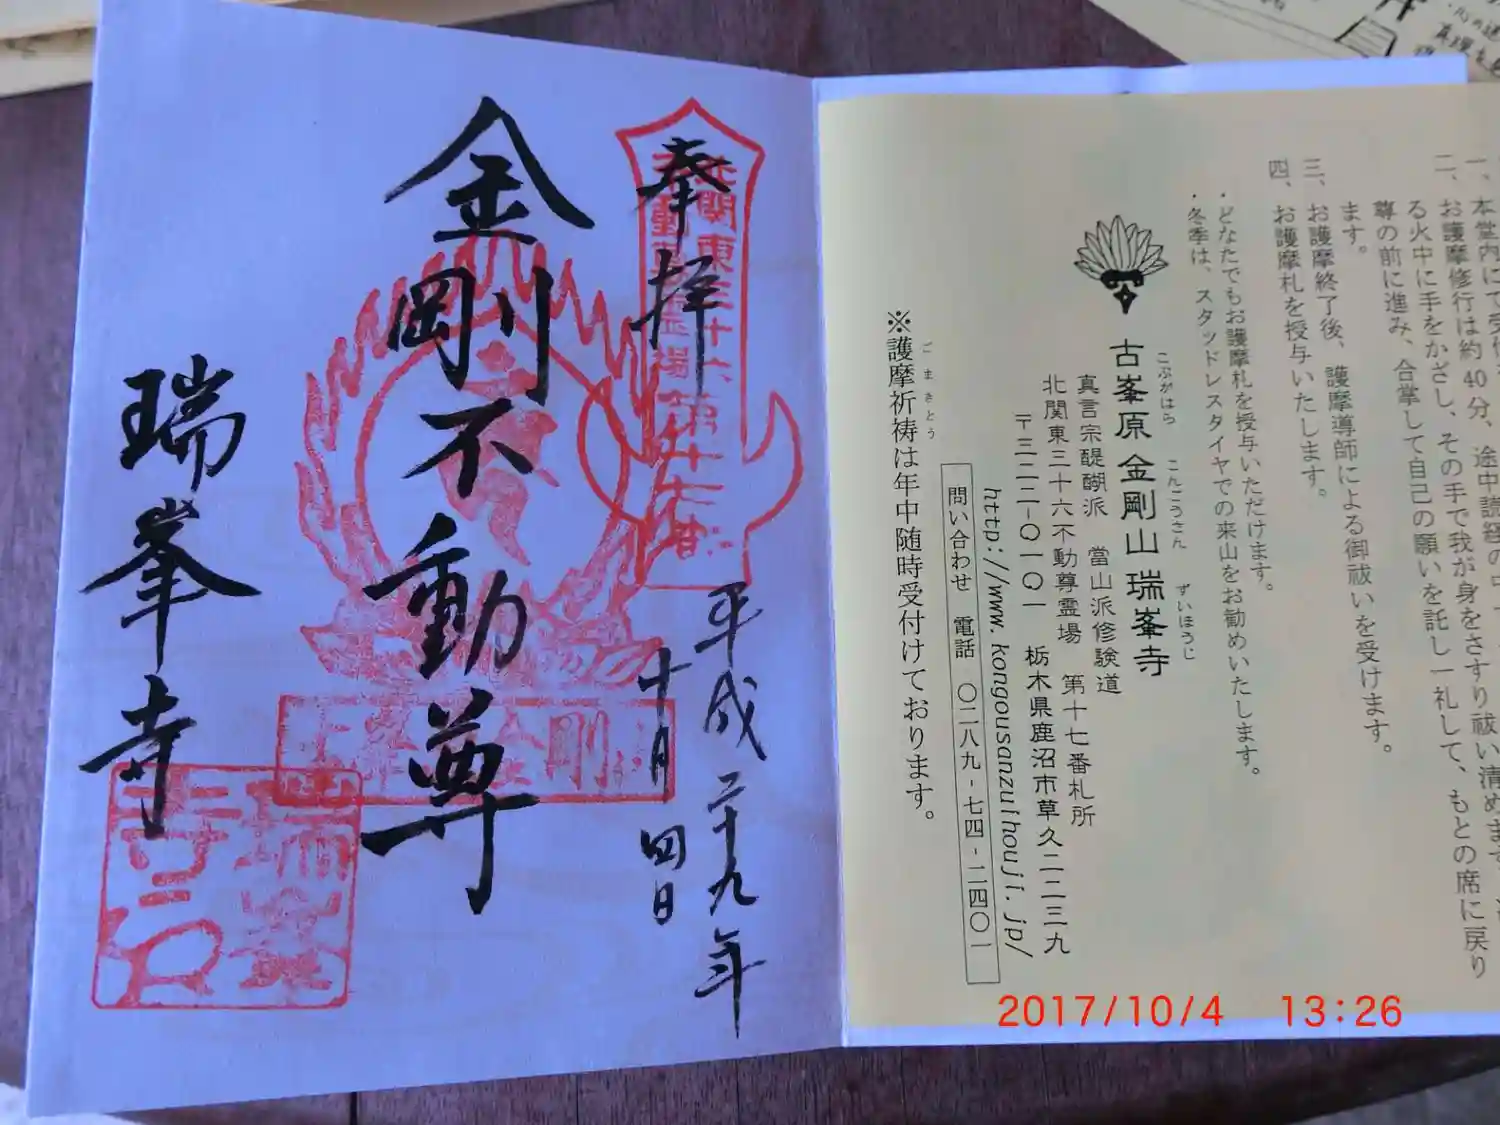 奉拝
平成二十九年
十月四日
金剛不動尊
瑞峯寺
北関東三十六
不動尊霊場第十七番
二、お護摩修行は約40分、途中読経の中
る火中に手をかざし、その手で我が身をさすり祓い清めます
尊の前に進み、合掌して自己の願いを託し一礼して、もとの席に戻り
ます。
三、お護摩終了後、護摩導師による御祓いを受けます。
四、お護摩札を授与いたします。
・どなたでもお護摩札を授与いただけます。
・冬季は、スタッドレスタイヤでの来山をお勧めいたします。
こぶがはら こんごうさん ずいほうじ
古峯原 金剛山 瑞峯寺
真言宗醍醐派 當山派修験道
北関東三十六不動尊霊場 第十七番札所
〒三二二-〇一〇一 栃木県鹿沼市草久二二三九
http://www.kongousanzuihouji.jp/
問い合わせ 電話 〇二八九-七四-二四〇一
ごまきとう
※護摩祈祷は年中随時受付けております。
2017/10/4 13:26